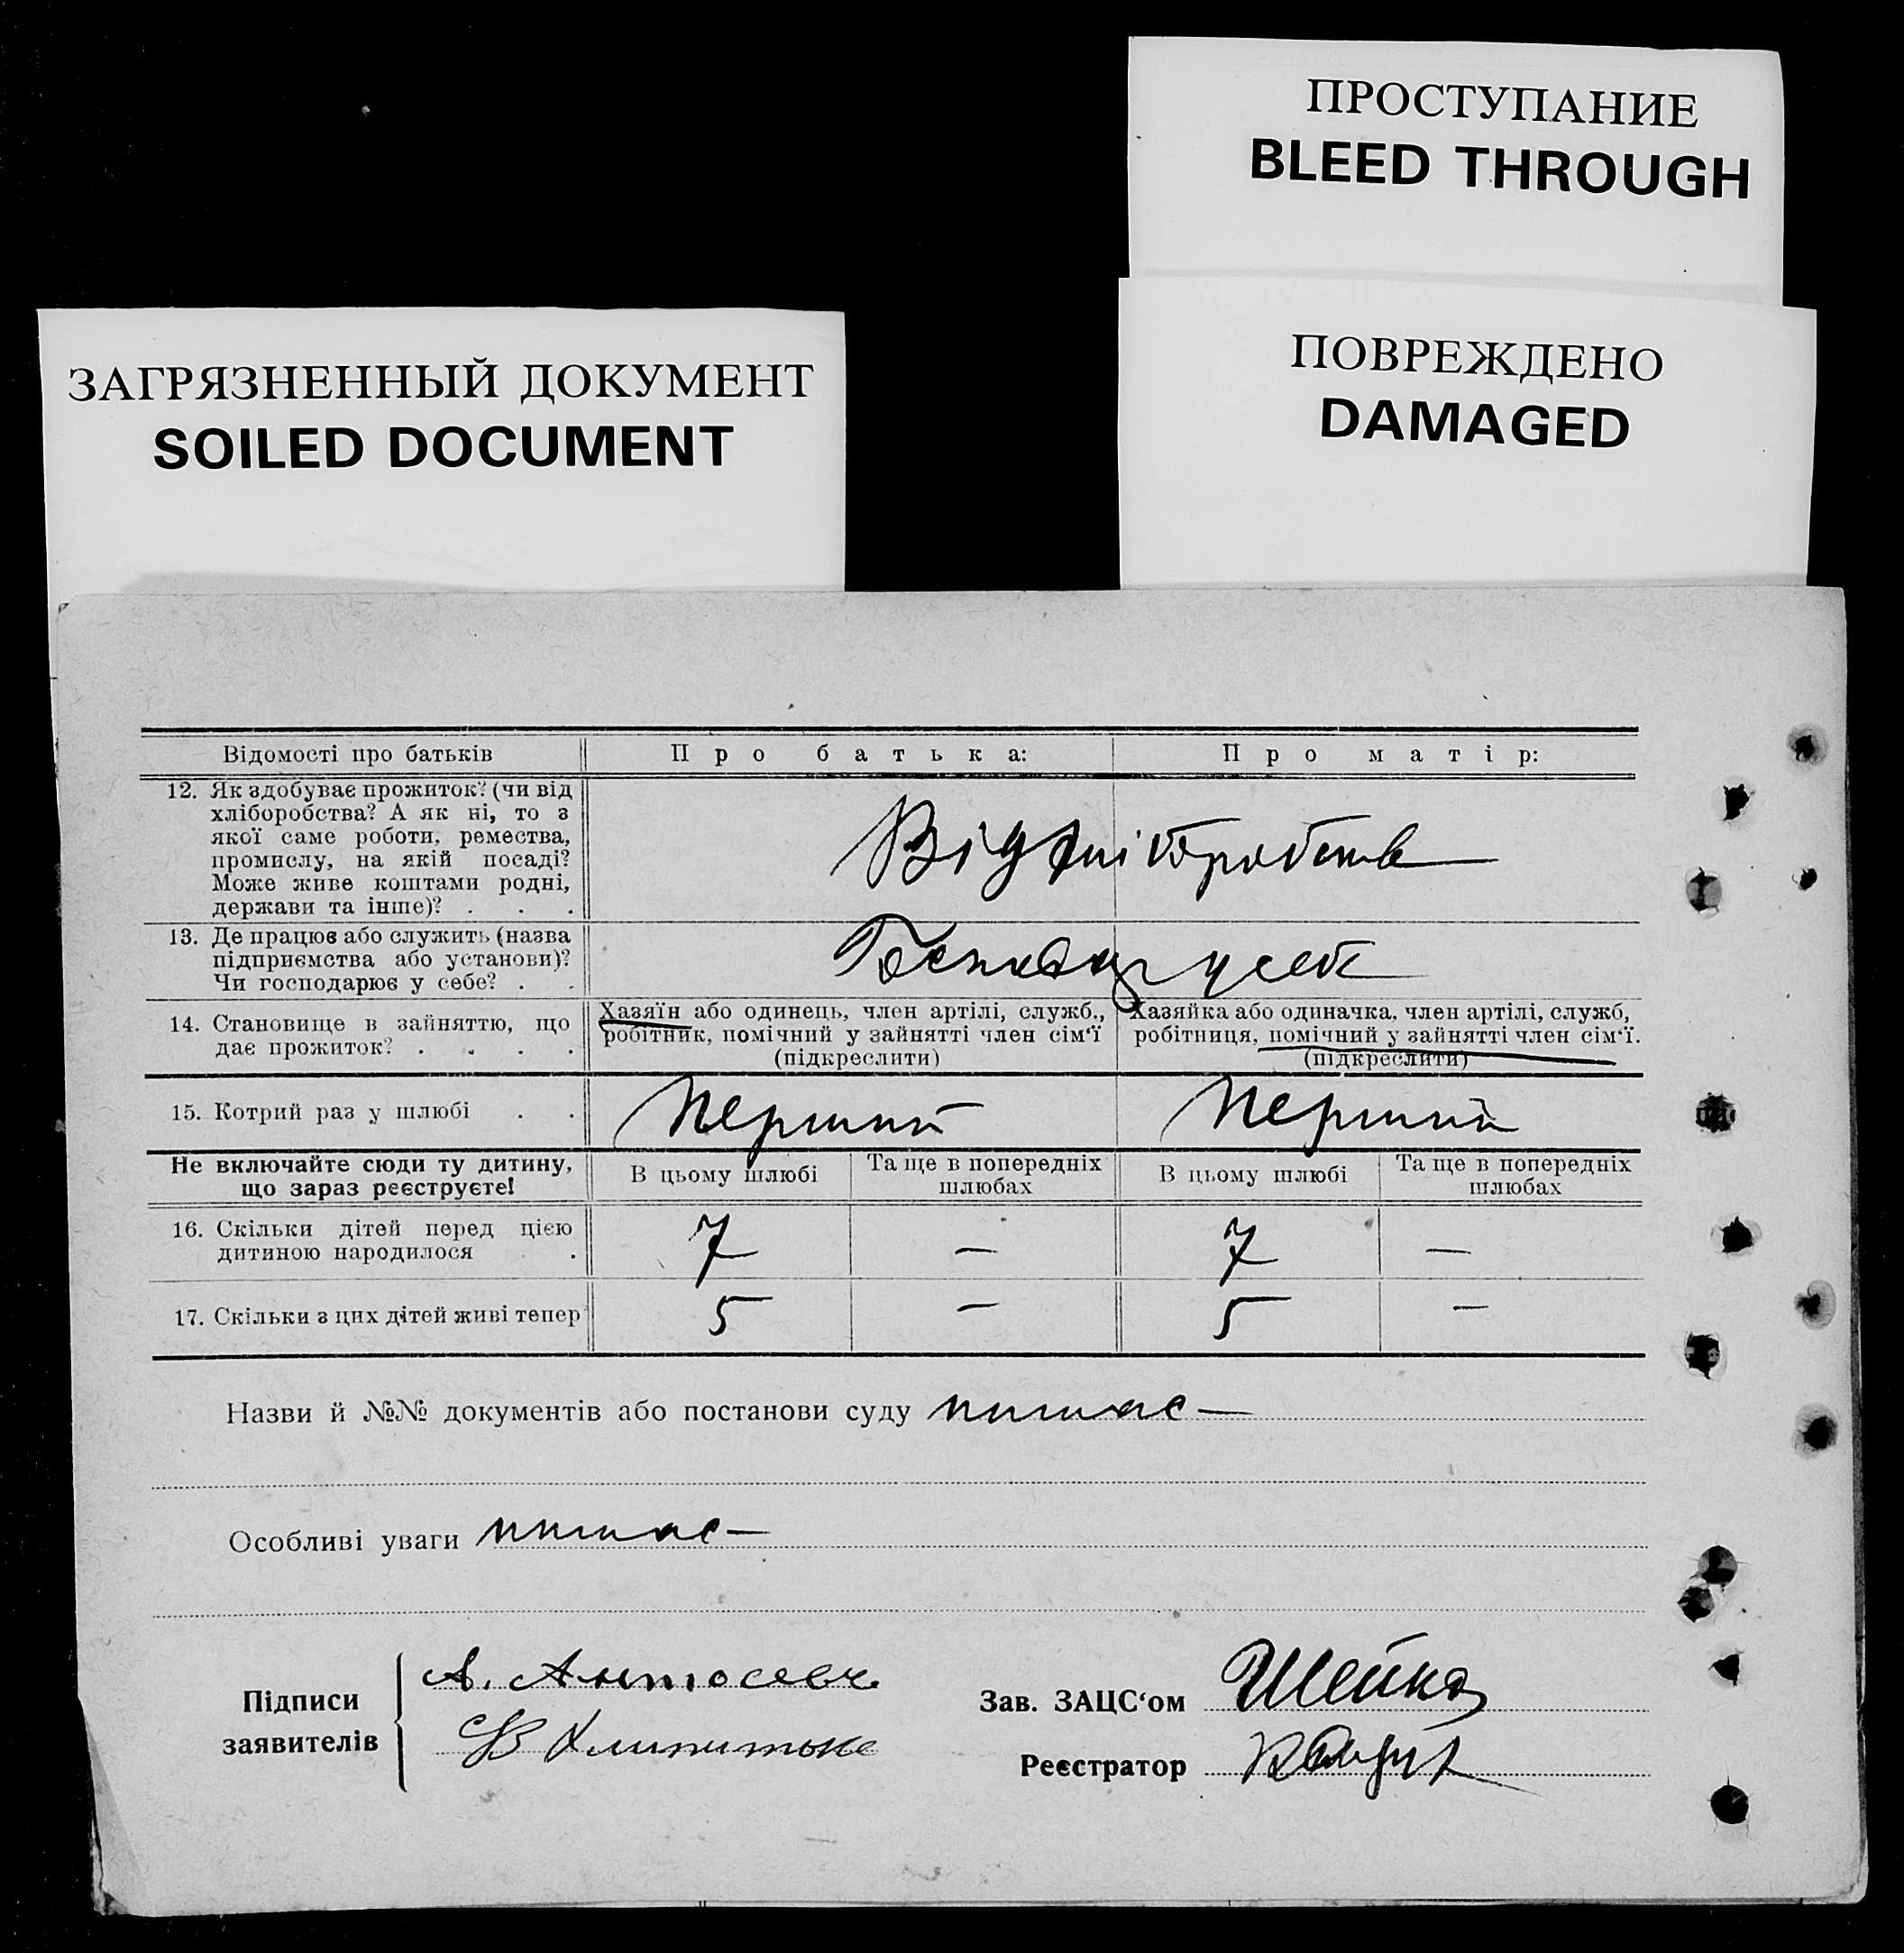 ПРОСТУПАНИЕ
BLEED THROUGH
ПОВРЕЖДЕНО
DAMAGED
ЗАГРЯЗНЕННЫЙ ДОКУМЕНТ
SOILED DOCUMENT
Відомості про батьків Про батька: Про матір:
12. Як здобуває прожиток? (чи від
хліборобства? А як ні, то з
якої саме роботи, ремества,
промислу, на якій посаді?
Може живе коштами родні,
держави та інше)? . . .
Від хліборобства
13. Де працює або служить (назва
підприємства або установи)?
Чи господарює у себе? . .
Господар у себе
14. Становище в зайняттю, що
дає прожиток? . . . .
Хазяїн або одинець, член артілі, служб.,
робітник, помічний у зайнятті член сім'ї
(підкреслити)
Хазяйка або одиначка, член артілі, служб,
робітниця, помічний у зайнятті член сім'ї.
(підкреслити)
15. Котрий раз у шлюбі . . Перший Перший
Не включайте сюди ту дитину,
що зараз реєструєте!
В цьому шлюбі
Та ще в попередніх
шлюбах
В цьому шлюбі
Та ще в попередніх
шлюбах
16. Скільки дітей перед цією
дитиною народилося .
7 — 7 —
17. Скільки з цих дітей живі тепер 5 — 5 —
Назви й №№ документів або постанови суду немає —
Особливі уваги немає —
Підписи
заявителів
А.
Зав. ЗАЦС‘ом Шейко
Реєстратор